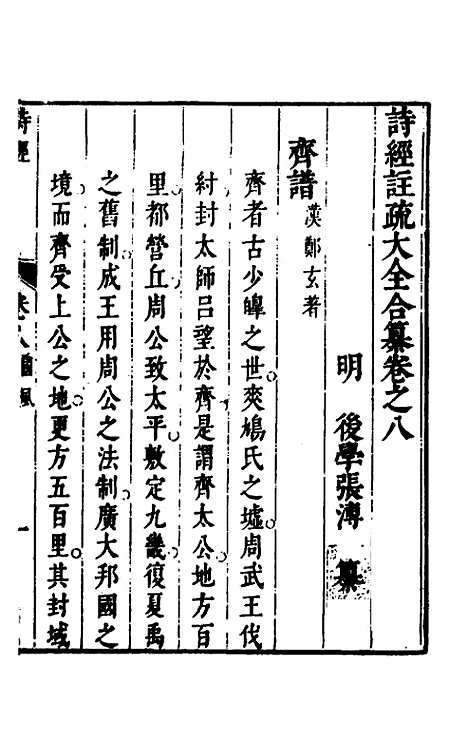 詩經註疏大全合纂卷之八
明　後學張溥　纂
齊譜漢鄭玄著
齊者古少皥之世爽鳩氏之墟周武王伐
紂封太師呂望於齊是謂齊太公地方百
里都營丘周公致太平敷定九畿復夏禹
之舊制成王用周公之法制廣大邦國之
境而齊受上公之地更方五百里其封域
詩經　卷之八國風　一